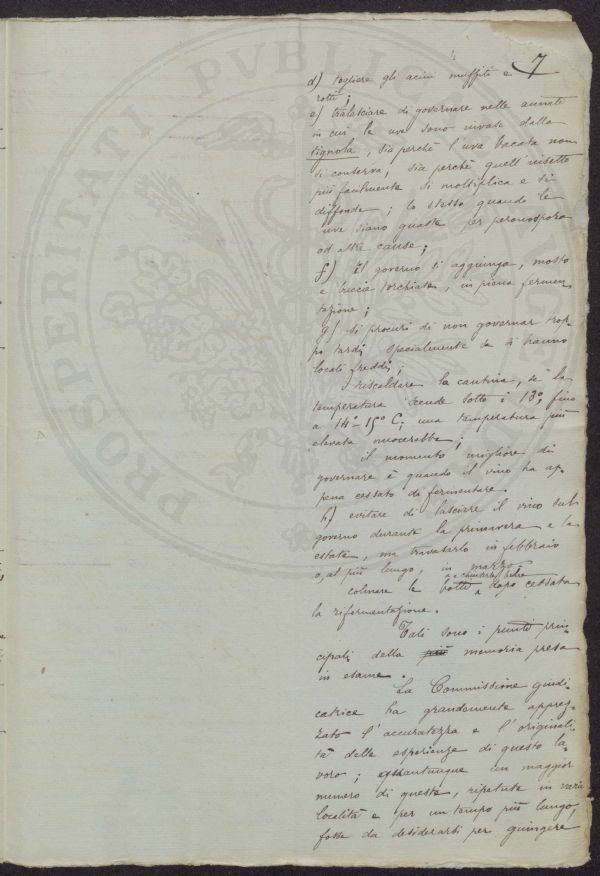 7
d) togliere gli acini muffiti e
rotti;
e) tralasciare di governare nelle annate
in cui le uve sono invase dalla
tignola, sia perchè l'uva bacata non
si conserva, sia perchè quell'insetto
più facilmente si moltiplica e si
diffonde; lo stesso quando le
uve siano guaste per peronospora
od altre cause;
f) al governo si aggiunga, mosto
e buccie torchiate, in piena fermen
tazione;
g) si procuri di non governar trop-
po tardi, specialmente se si hanno
locali freddi;
riscaldare la cantina, se la
temperatura scende sotto i 13°, fino
a 14°-15° C; una temperatura più
elevata nuocerebbe;
il momento migliore di
governare è quando il vino ha ap
pena cessato di fermentare.
h) evitare di lasciare il vino sul
governo durante la primavera e la
estate, ma travasarlo in febbraio
o, al più lungo, in marzo,
colmare le botti e chiuderle bene dopo cessata
la rifermentazione.
Tali sono i punti prin-
cipali della più memoria presa
in esame.
La Commissione giudi-
catrice ha grandemente apprez-
zato l'accuratezza e l'originali-
tà delle esperienze di questo la-
voro; quantunque un maggior
numero di queste, ripetute in varie
località e per un tempo più lungo,
fosse da desiderarsi per giungere
PROSPERITATI PVBLICAE